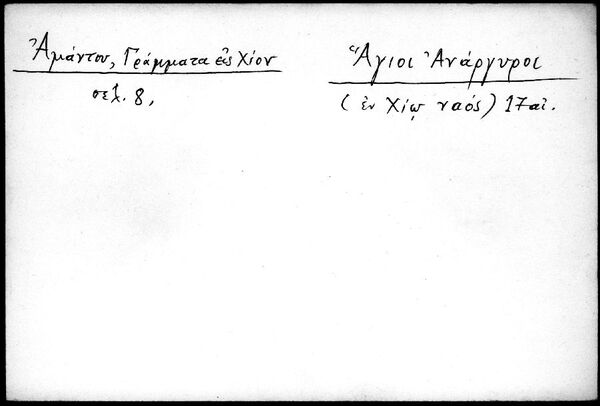 Ἀμάντου, Γράμματα εἰς Χίον
σελ. 8,
Ἅγιοι Ἀνάργυροι
(ἐν Χίῳ ναός) 17 αἰ.